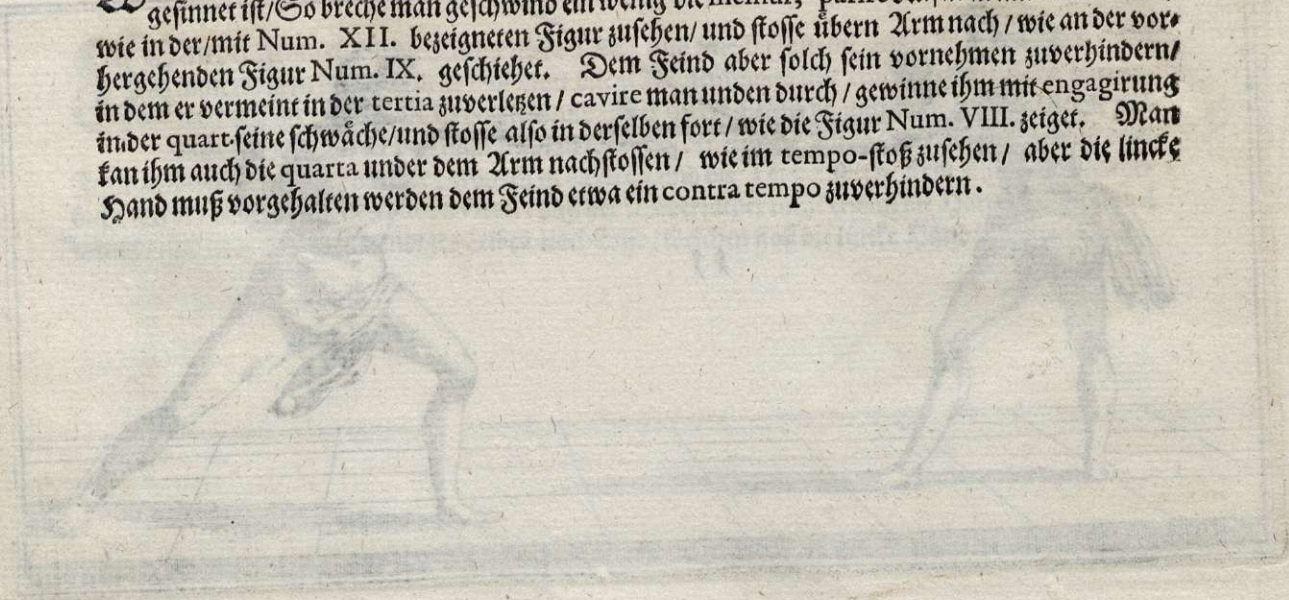 gesinnet ist/So breche man geschwind ein wenig die
wie in der/mit Num. XII. bezeigneten Figur zusehen/ und stosse übern Arm nach / wie an der vor⸗
hergehenden Figur Num. IX. geschiehet. Dem Feind aber solch sein vornehmen zuverhindern/
in dem er vermeint in der tertia zuverletzen / cavire man unden durch / gewinne ihm mit engagirung
in der quart seine schwåche/und stosse also in derselben fort / wie die Figur Num. VIII. zeiget. Man
kan ihm auch die quarta under dem Arm nachstossen / wie im tempo-stoß zusehen / aber die lincke
Hand muß vorgehalten werden dem Feind etwa ein contra tempo zuverhindern.